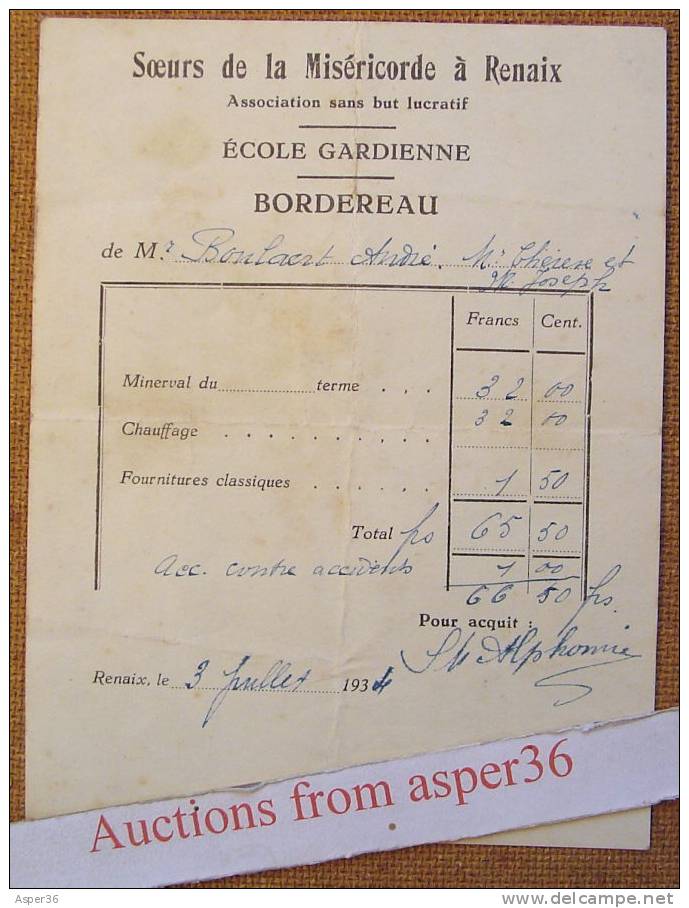 Sœurs de la Miséricorde à Renaix
Association sans but lucratif
ÉCOLE GARDIENNE
BORDEREAU
de M.r Boulaert André. M. Thérèse et
M. Joseph
Francs Cent.
Minerval du terme . . . 32 00
Chauffage . . . . . . . . . . 32 00
Fournitures classiques . . . . . . 1 50
Total frs 65 50
Acc. contre accidents 1 00
66 50 frs.
Pour acquit :
Sr M Alphonsie
Renaix, le 3 Juillet 1934
Auctions from asper36
Asper36
delcampe.net